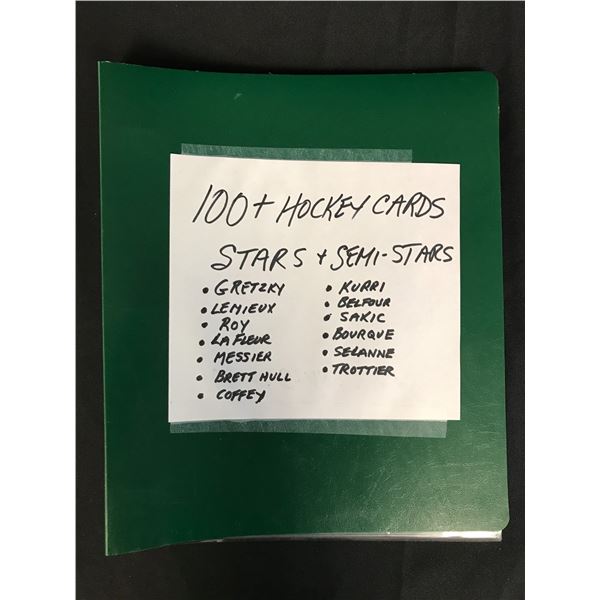 100+ HOCKEY CARDS
STARS + SEMI-STARS
• GRETZKY
• LEMIEUX
• ROY
• LAFLEUR
• MESSIER
• BRETT HULL
• COFFEY
• KURRI
• BELFOUR
• SAKIC
• BOURQUE
• SELANNE
• TROTTIER